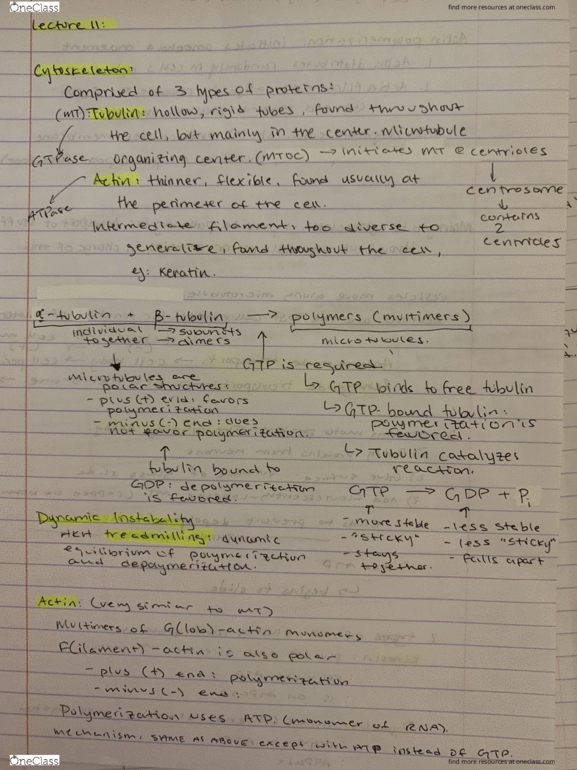 OneClass
find more resources at oneclass.com
Lecture 11:
Cytoskeleton:
Comprised of 3 types of proteins:
(MT) Tubulin: hollow, rigid tubes, found throughout
the cell, but mainly in the center. Microtubule
GTPase organizing center. (MTOC) → initiates MT @ centrioles
Actin: thinner, flexible, found usually at
centrosome
ATPase the perimeter of the cell.
contains
2
centrioles
Intermediate filament: too diverse to
generalize, found throughout the cell,
eg: keratin.
α-tubulin + β-tubulin → polymers (multimers)
individual → subunits
together → dimers
microtubules.
GTP is required.
microtubules are
polar structures:
- plus (+) end: favors
polymerization
- minus (-) end: does
not favor polymerization.
↳ GTP binds to free tubulin
↳ GTP-bound tubulin:
polymerization is
favored.
↳ Tubulin catalyzes
reaction.
tubulin bound to
GDP: depolymerization
is favored.
GTP → GDP + Pi
- more stable
- "sticky"
- stays
together.
- less stable
- less "sticky"
- falls apart
Dynamic Instability
AKA treadmilling: dynamic
equilibrium of polymerization
and depolymerization.
Actin: (very similar to MT)
Multimers of G(lob)-actin monomers
F(ilament)-actin is also polar
- plus (+) end: polymerization
- minus (-) end:
Polymerization uses ATP (monomer of RNA).
mechanism: SAME AS ABOVE except with ATP instead of GTP.
OneClass
find more resources at oneclass.com